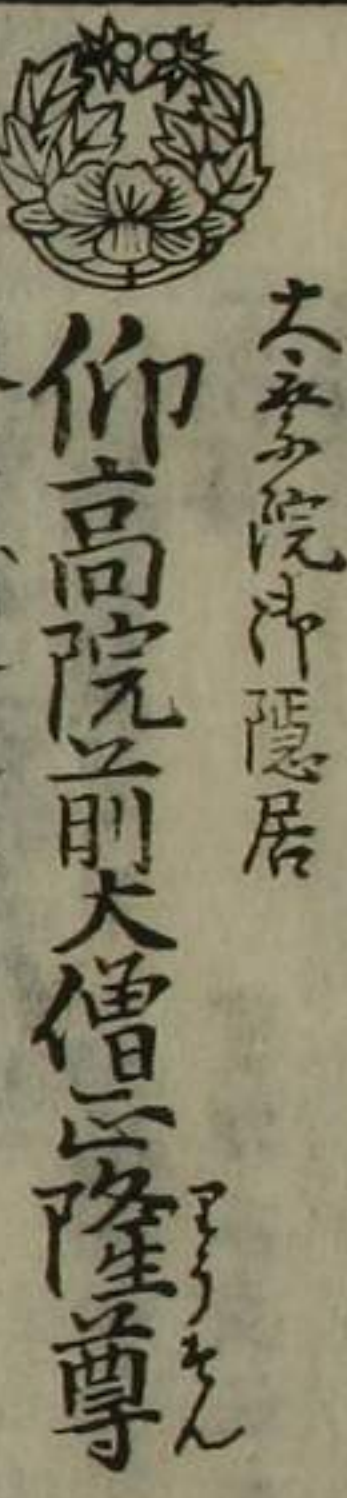 大乗院御隠居
仰高院前大僧正隆尊
りうそん